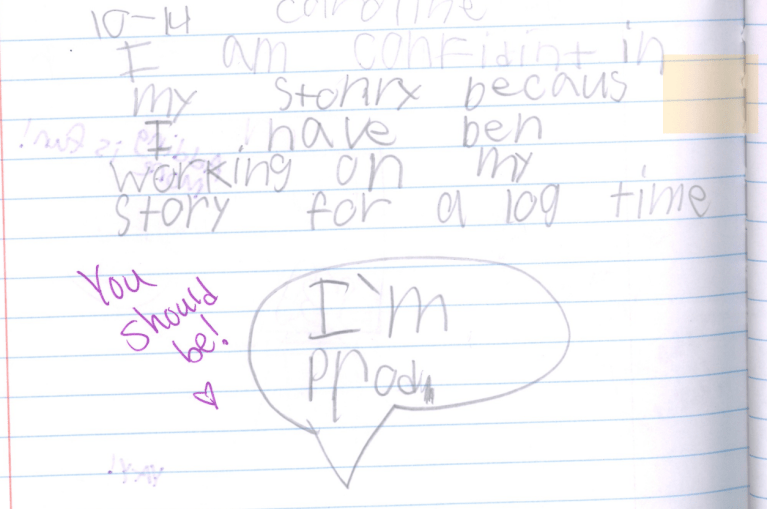 10-14 caroline
I am confidint in
my stohry becaus
I have ben
working on my
story for a log time
You
should
be!
I'm
prod